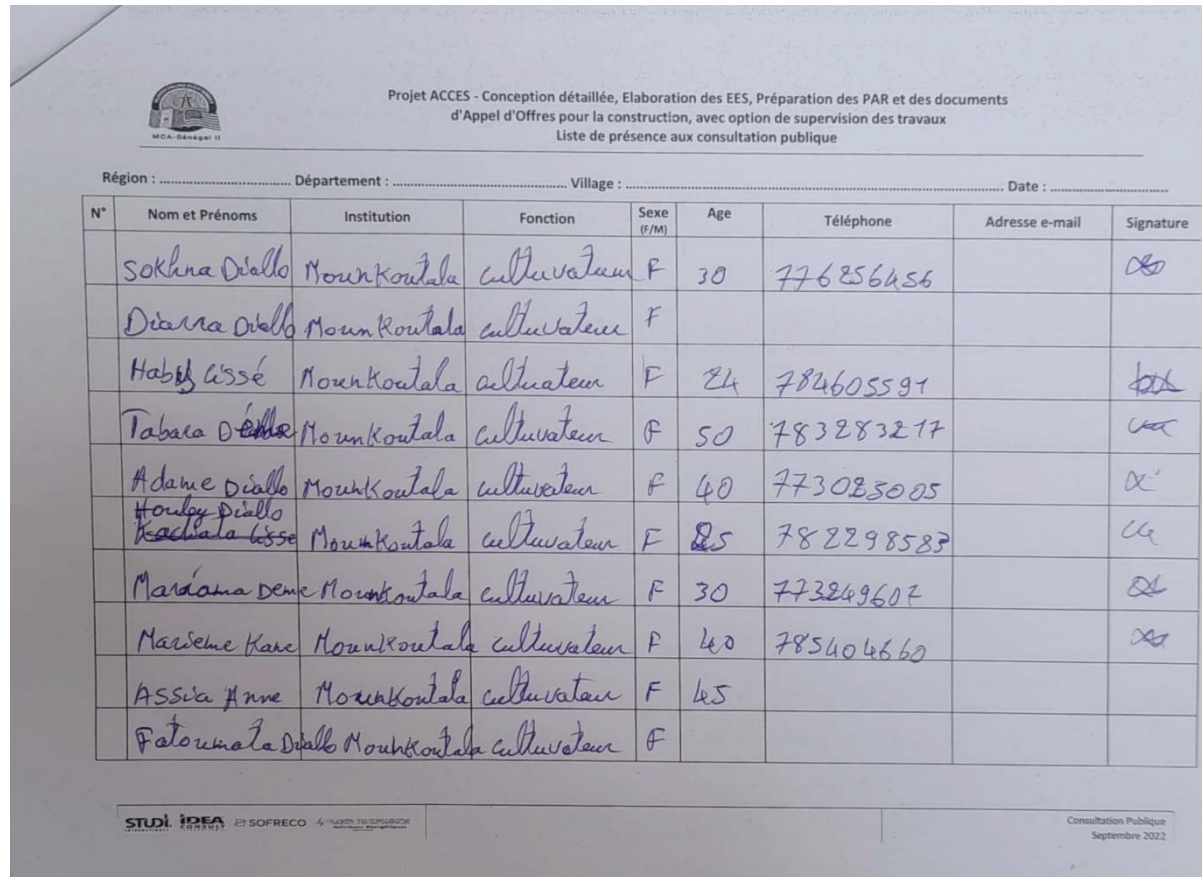 MCA-Sénégal II
Projet ACCES - Conception détaillée, Elaboration des EES, Préparation des PAR et des documents
d'Appel d'Offres pour la construction, avec option de supervision des travaux
Liste de présence aux consultation publique
Région : ................................. Département : ............................................ Village : ............................................................................................... Date : ..............................
N° Nom et Prénoms Institution Fonction Sexe (F/M) Age Téléphone Adresse e-mail Signature
Sokhna Diallo Mounkoutala cultuvateur F 30 776256456
Diarra Diallo Mounkoutala cultuvateur F
Haby Cissé Mounkoutala cultuateur F 24 784605591
Tabara Mounkoutala cultuvateur F 50 783283217
Adame Diallo Mounkoutala cultuvateur F 40 773083005
Houley Diallo
Mounkoutala cultuvateur F 25 782298583
Mariama Deme Mounkoutala cultuvateur F 30 773249607
Marieme Kane Mounkoutala cultuvateur F 40 785404660
Assia Anne Mounkoutala cultuvateur F 45
Fatoumata Diallo Mounkoutala cultuvateur F
STUDI IDEA CONSULT SOFRECO
Consultation Publique
Septembre 2022